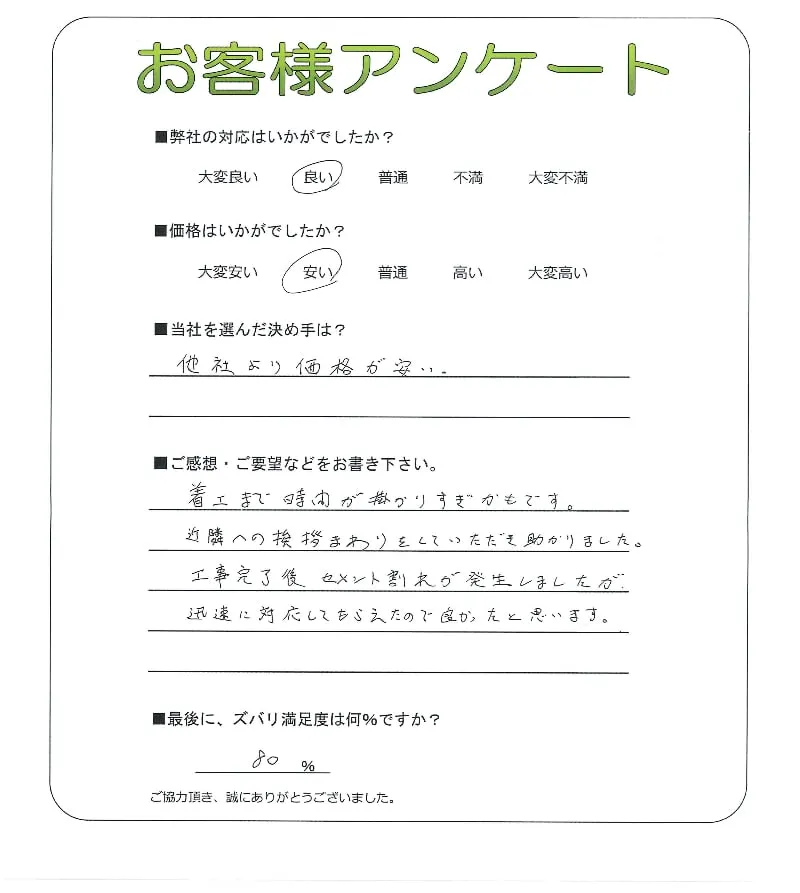 お客様アンケート
■弊社の対応はいかがでしたか？
大変良い 良い 普通 不満 大変不満
■価格はいかがでしたか？
大変安い 安い 普通 高い 大変高い
■当社を選んだ決め手は？
他社より価格が安い.
■ご感想・ご要望などをお書き下さい。
着工まで時間が掛かりすぎかもです。
近隣への挨拶まわりをしていただき助かりました。
工事完了後セメント割れが発生しましたが.
迅速に対応してもらえたので良かったと思います。
■最後に、ズバリ満足度は何％ですか？
80 ％
ご協力頂き、誠にありがとうございました。